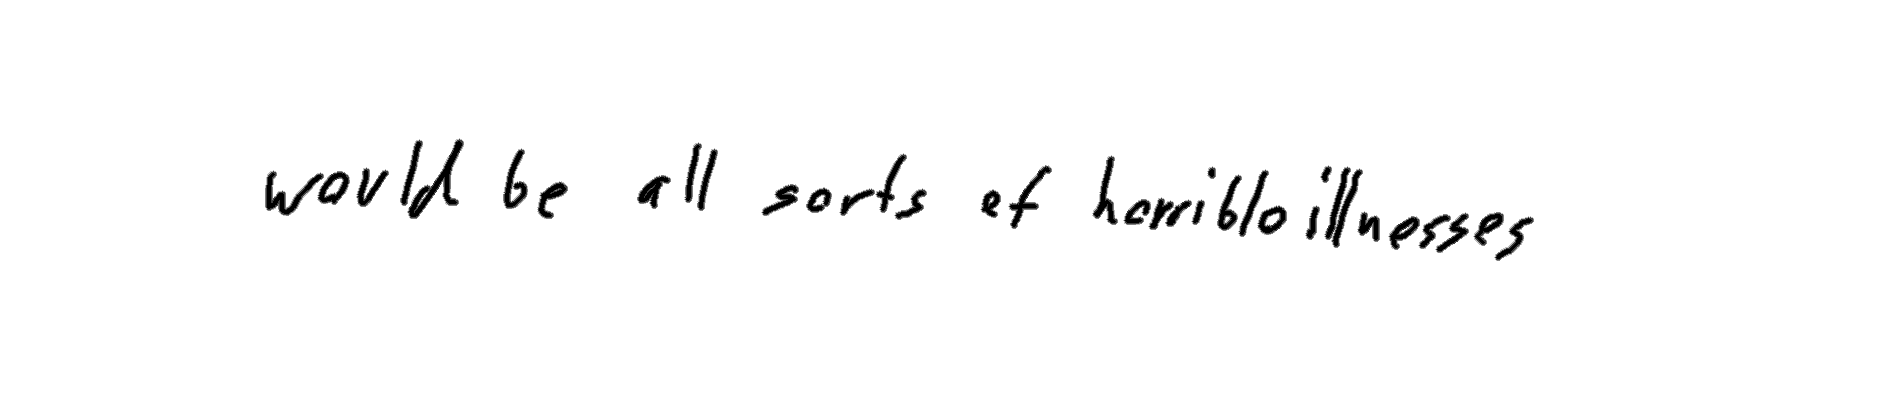 would be all sorts of horrible illnesses